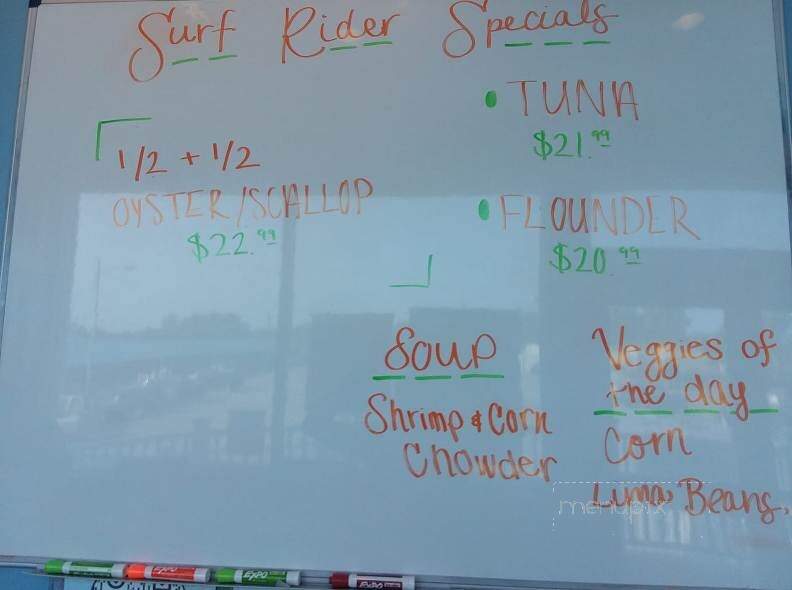 Surf Rider Specials
1/2 + 1/2
OYSTER/SCALLOP
$22.99
• TUNA
$21.99
• FLOUNDER
$20.99
Soup
Shrimp & Corn
Chowder
Veggies of
the day
Corn
Lima Beans.
menupix
EXPO
EXPO
EXPO